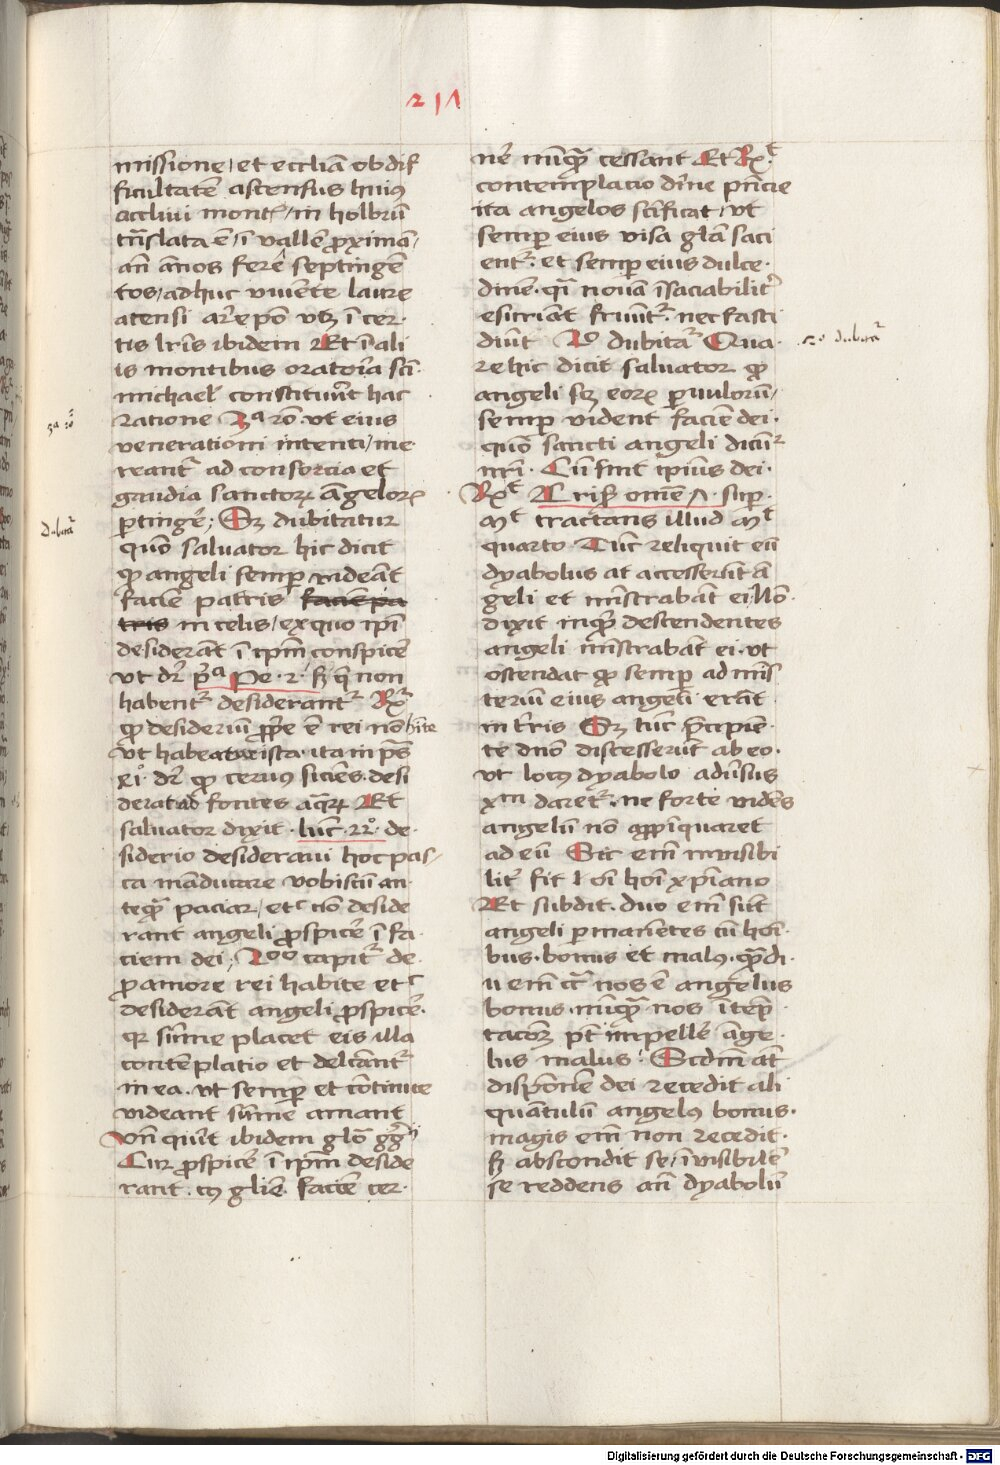 217
missione / et eccliā ob dif
ficultatē ascensus huiꝯ
accliui mont / in holbrū
trāslata ē / ī vallē proximā /
an̄ annos ferē septingē
tos / adhuc viuēte laure
atensi are'po vt ī cer
tis lrīs ibidem Et ī ali
is montibus oratoria sci
michael' constituūt hac
ratione 3ª rō vt eius
venerationi intenti / me
reant' ad consorcia et
gaudia sanctorꝝ āgelorꝝ
ꝑtingē'; Sꝫ dubitatur
quō saluator hic dicit
ꝙ angeli semꝑ videāt
faciē patris faciē pa
tris in celis / ex quo ip̄i
desiderāt ī ip̄m conspicē'
vt dr̄ pª Pe · 2 · sꝫ q̄ non
habent' desiderant' Rx
ꝙ desideriū prop̄e ē rei nō hīte
vt habeatur ista · ita in p̄s
xi° dr̄ ꝙ ceruꝯ sitiēs desi
derat ad fontes aq̄rꝝ Et
saluator dixit · luc̄ · 22° · de
siderio desideraui hoc pas
ca māducare vobiscū an
teq̄ꝫ paciar / etc nō deside
rant angeli ꝓspicē' ī fa
ciem dei; 2°° capit' de
ꝓ amore rei habite etc
desiderāt angeli ꝓspicē'
qr sūme placet eis illa
contēplatio et delcānt'
in ea · vt semꝑ et cōtinue
videant sūme amant
vn̄ quūt ibidem glō g̅g̅
Cur ꝓspicē' ī ip̄m deside
rant · cꝯ gl̄ie faciē cer
nē' nūq̄ꝫ cessant Et Rx t
contemplacio diīne p̄ncie
ita angelos sc̄ificat / vt
semꝑ eius visa gl̄ā saci
ent' · et semꝑ eius dulce
dinē · q̄i nouā īsaciabilit'
esuriāt fruūt' · nec fasti
diūt V° dubitat' Qua
re hic dicit saluator ꝙ
angeli sꝫ eorꝝ paruulorū /
semꝑ vident faciē dei ·
quō sancti angeli dicūt'
nr̄i · Cū sint ip̄ius dei ·
Rx t Criß omē · 7 · suꝑ
Mt tractans illud Mt
quarto · Tūc reliquit eū
dyabolus at accesserūt ā
geli et mīstrabāt ei / Nō
dixit inq̄ꝫ descendentes
angeli mīstrabāt ei · vt
ostendat ꝙ semꝑ ad mīs
teriū eius angeli erāt
in t'ris Sꝫ tūc p̄cipiē
te dn̄o discesserūt ab eo ·
vt locꝯ dyabolo adu'sus
xm̄ daret' · ne forte vidēs
angelū nō appīquaret
ad eū Sic em̄ inuisibi
lit' fit ī om̄i hoī xp̄iano
Et subdit · duo em̄ sūt
angeli ꝑmanētes cū hoī
bus · bonus et malꝯ · q̄ꝫdi
u em̄ ct̄ nos ē angelus
bonus · nūq̄ꝫ nos ī tep̄
tacōꝫ pt̄ impellē' āge
lus malus · Secdm̄ at̄
dispōnem dei recedit ali
quātulū angelꝯ bonus ·
magis em̄ non recedit ·
sꝫ abscondit se / īuisibile'
se reddens an̄ dyabolū
3ª rō
Dubitat'
5° dubitat'
Digitalisierung gefördert durch die Deutsche Forschungsgemeinschaft - DFG